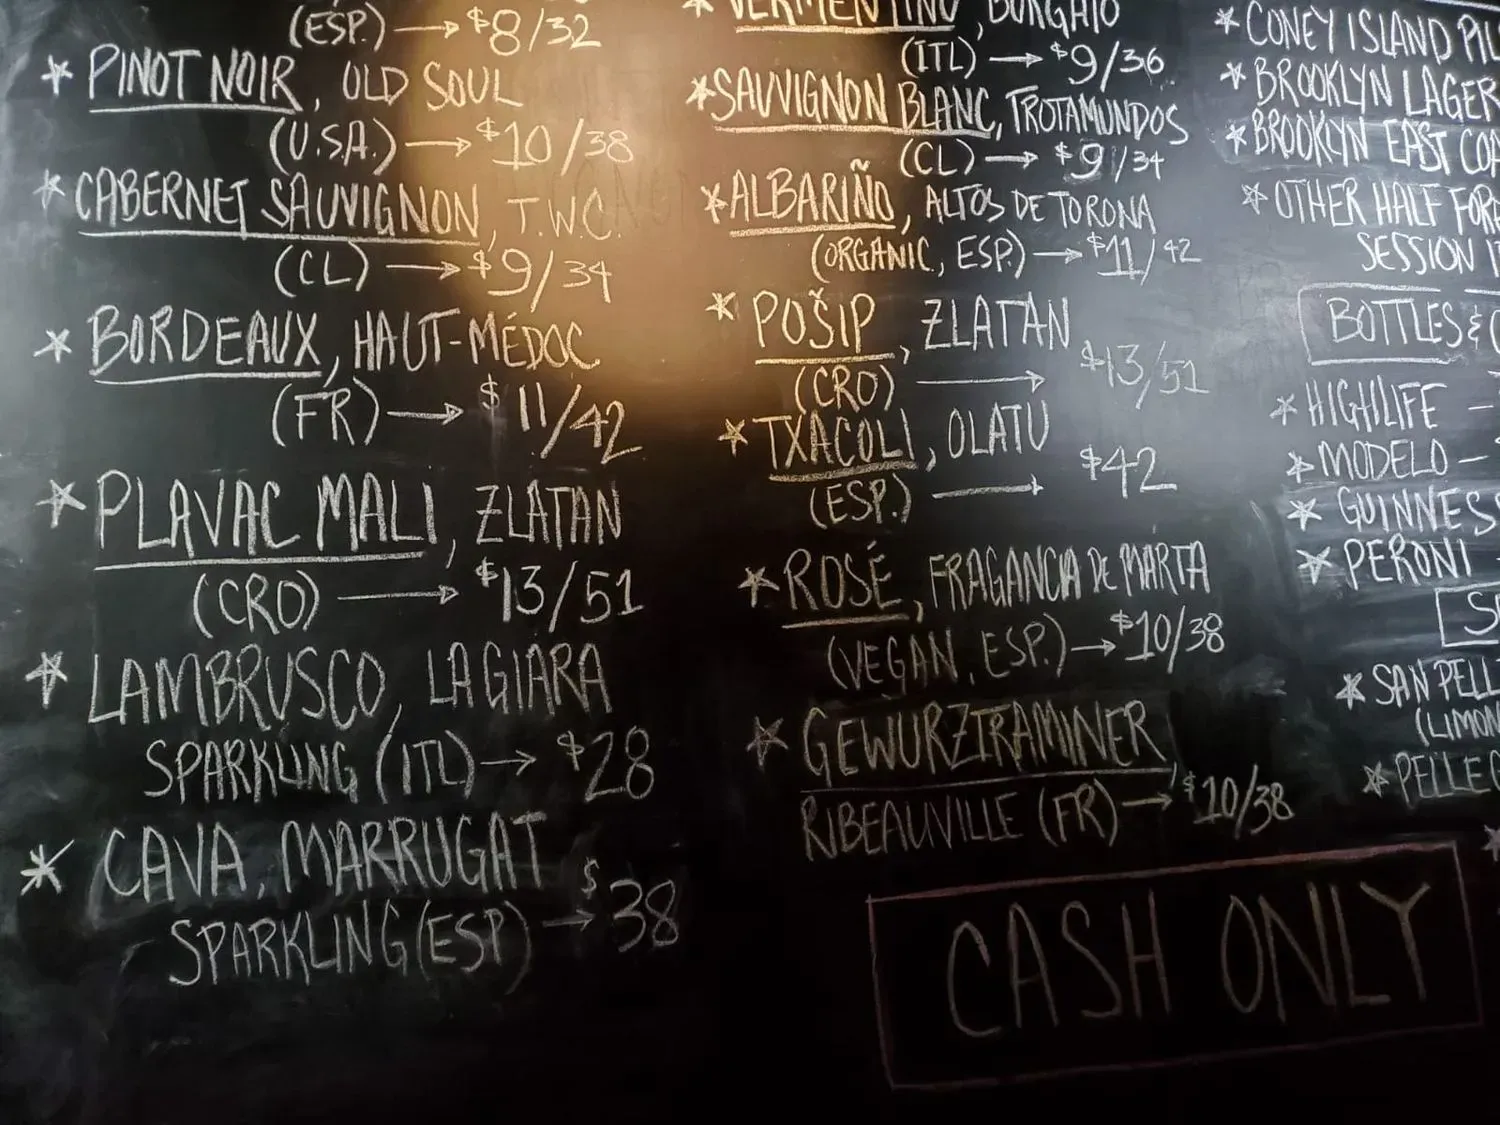 (ESP.) → $8/32
* PINOT NOIR, OLD SOUL
(U.S.A.) → $10/38
* CABERNET SAUVIGNON, T.W.C.
(CL) → $9/34
* BORDEAUX, HAUT-MÉDOC
(FR) → $11/42
* PLAVAC MALI, ZLATAN
(CRO) → $13/51
* LAMBRUSCO, LA GIARA
SPARKLING (ITL) → $28
* CAVA, MARRUGAT
SPARKLING (ESP) → $38
* VERMENTINO,
(ITL) → $9/36
* SAUVIGNON BLANC, TROTAMUNDOS
(CL) → $9/34
* ALBARIÑO, ALTOS DE TORONA
(ORGANIC, ESP.) → $11/42
* POŠIP, ZLATAN
(CRO) → $13/51
* TXACOLI, OLATU
(ESP.) → $42
* ROSÉ, FRAGANCIA DE MARTA
(VEGAN, ESP.) → $10/38
* GEWURZTRAMINER,
RIBEAUVILLE (FR) → $10/38
CASH ONLY
* CONEY ISLAND PIL
* BROOKLYN LAGER
* BROOKLYN EAST COA
* OTHER HALF FOR
SESSION
BOTTLES &
* HIGHLIFE –
* MODELO –
* GUINNESS
* PERONI
* SAN PELL
(LIMON
* PELLE